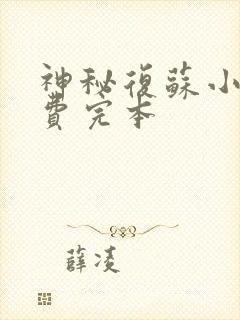 神秘復蘇小
費完本
薛凌